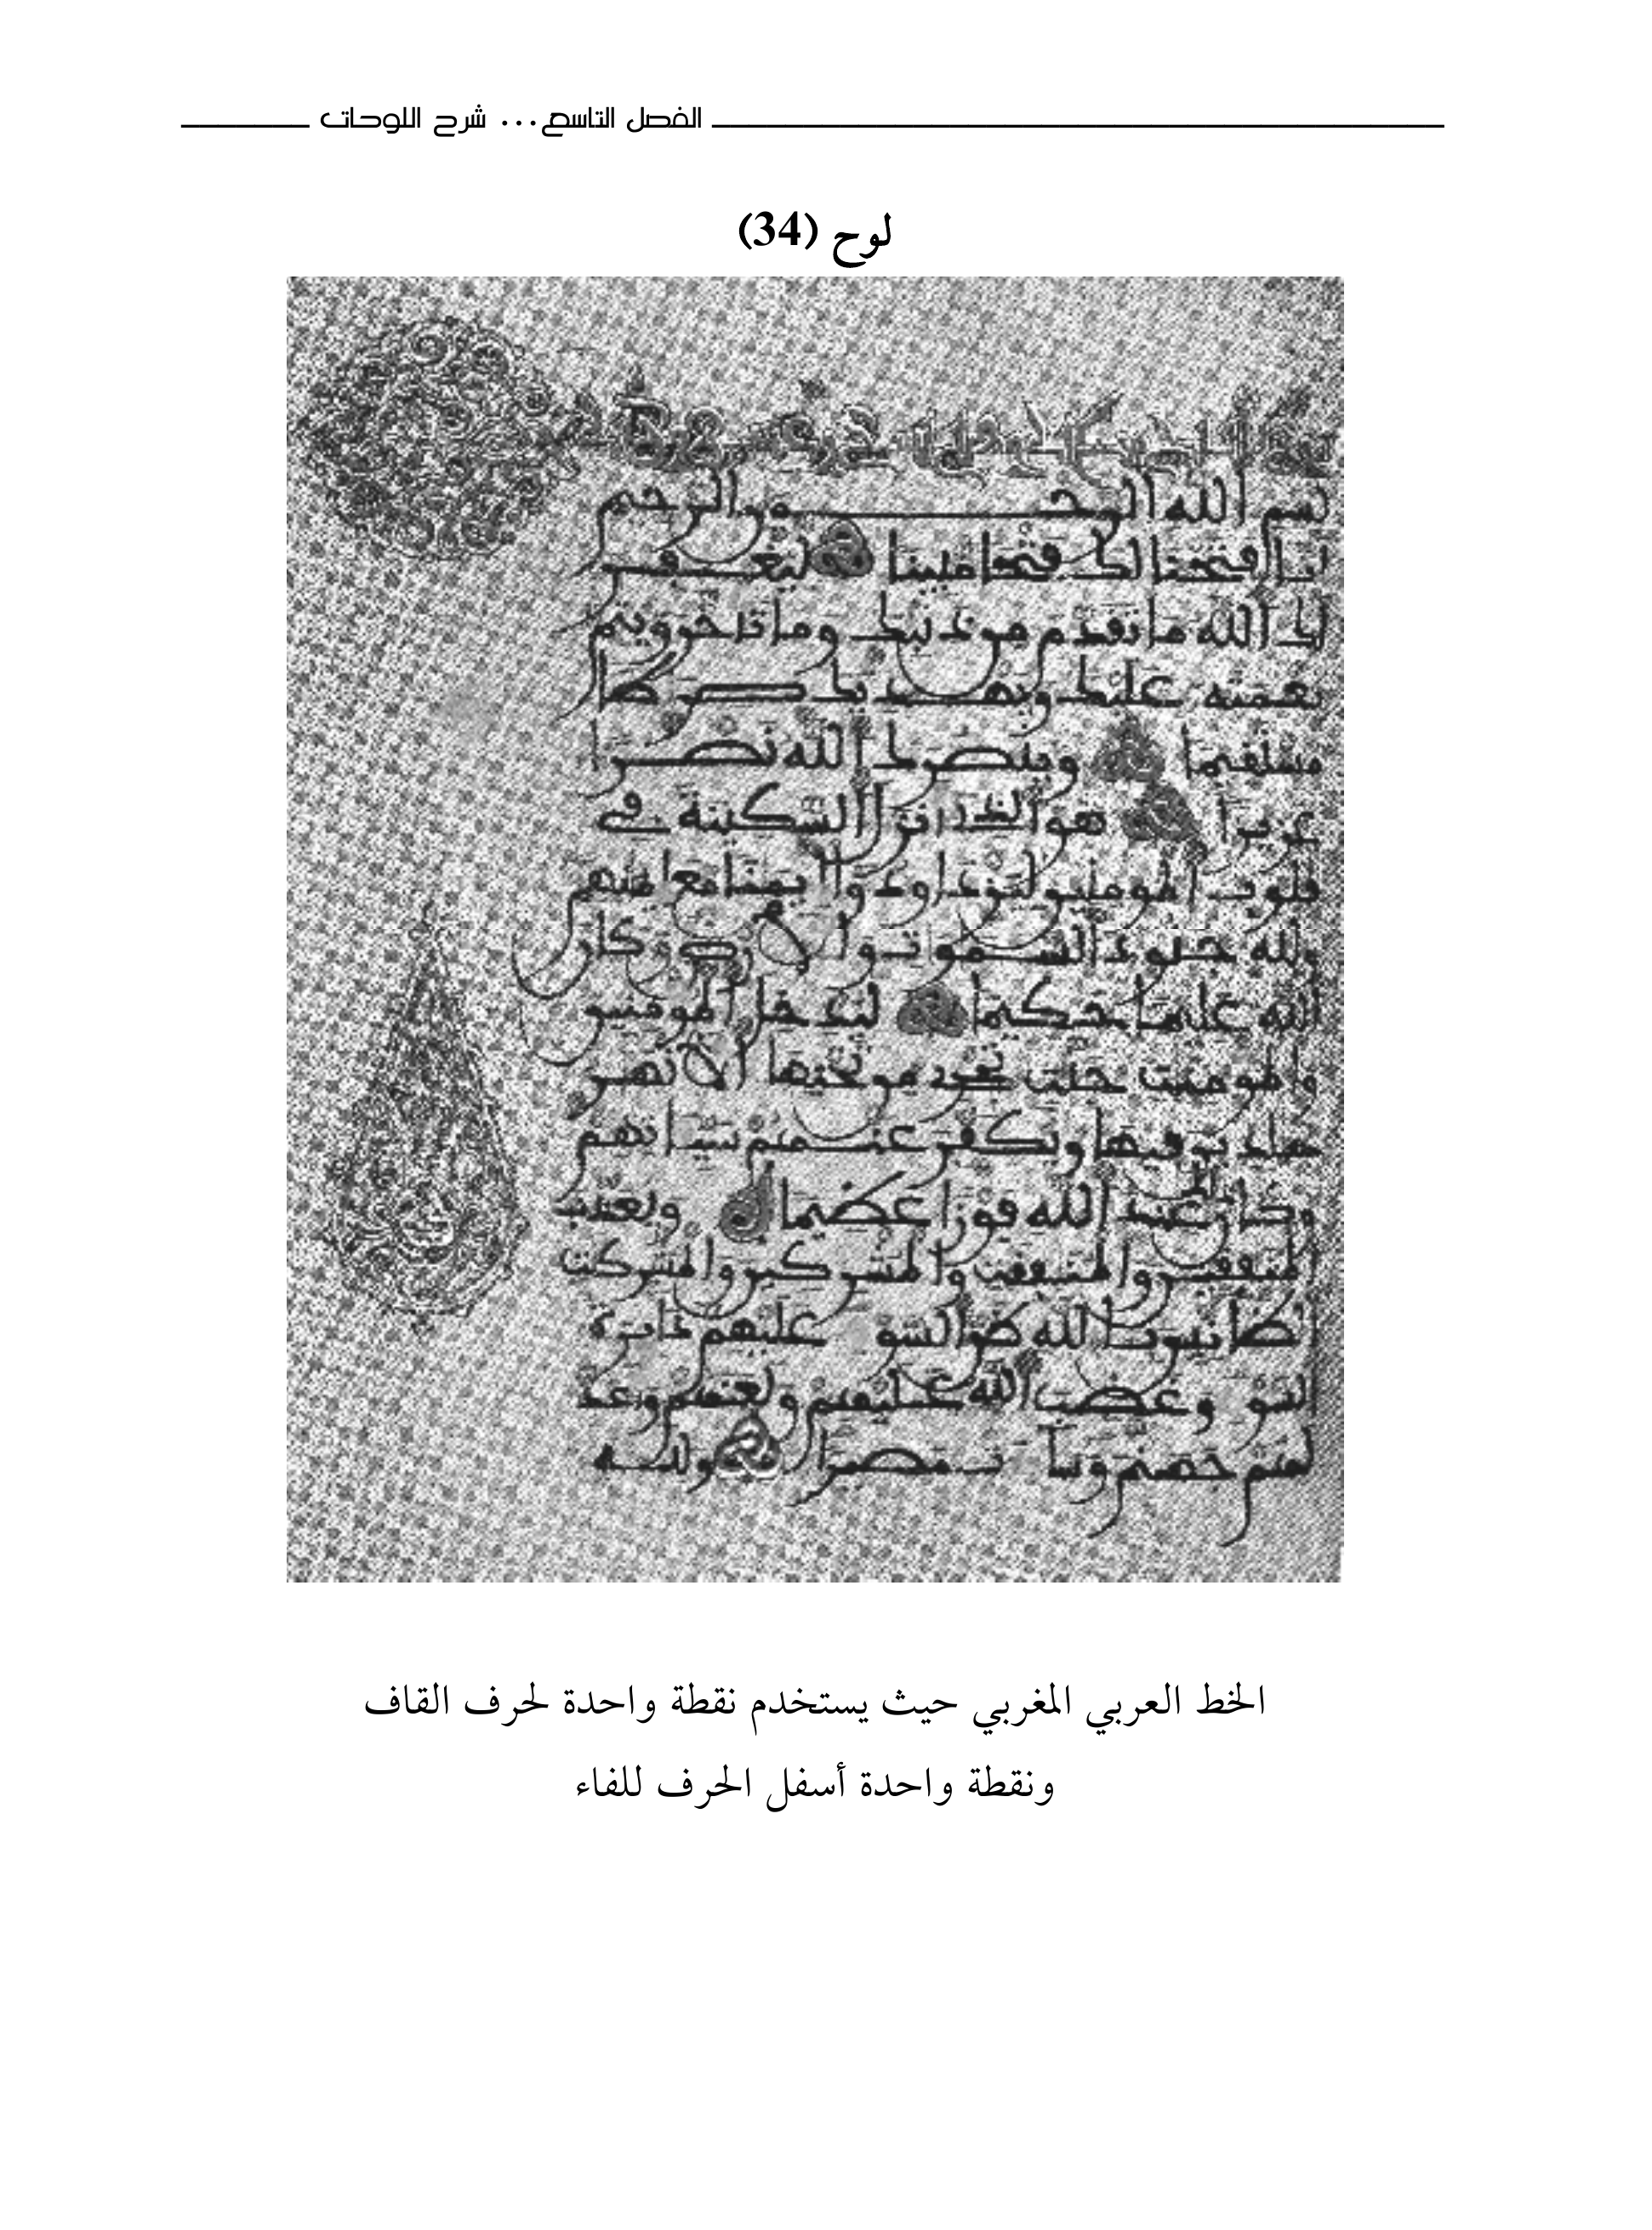 الفصل التاسع... شرح اللوحات
لوح (34)
بسم الله الرحمن الرحيم
انا فتحنا لك فتحا مبينا ليغفر
لك الله ما تقدم من ذنبك وما تاخر ويتم
نعمته عليك ويهديك صرطا
مستقيما وينصرك الله نصرا
عزيزا هو الذي انزل السكينة في
قلوب المومنين ليزدادوا ايمنا مع ايمنهم
ولله جنود السموت والارض وكان
الله عليما حكيما ليدخل المومنين
والمومنت جنت تجري من تحتها الانهر
خلدين فيها ويكفر عنهم سياتهم
وكان ذلك عند الله فوزا عظيما ويعذب
المنفقين والمنفقت والمشركين والمشركت
الظانين بالله ظن السو عليهم دايرة
السو وغضب الله عليهم ولعنهم واعد
لهم جهنم وسات مصيرا ولله
الخط العربي المغربي حيث يستخدم نقطة واحدة لحرف القاف
ونقطة واحدة أسفل الحرف للفاء